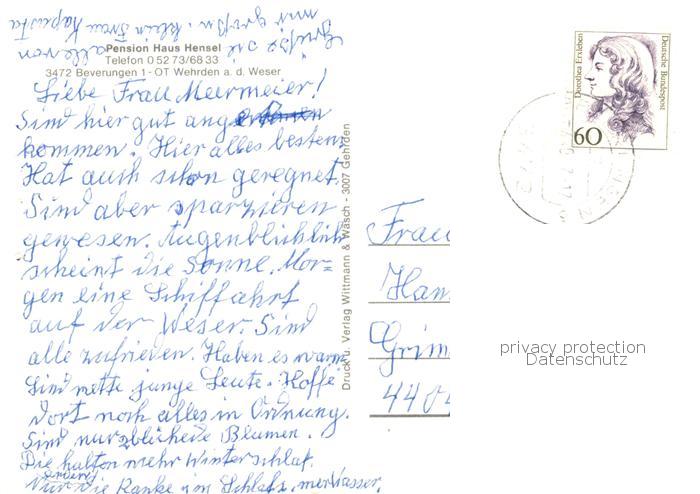 Pension Haus Hensel
Telefon 0 52 73/68 33
3472 Beverungen 1 - OT Wehrden a. d. Weser
Liebe Frau Meermeier!
Sind hier gut ange
kommen. Hier alles bestens
Hat auch schon geregnet.
Sind aber sparzieren
gewesen. Augenblicklich
scheint die Sonne. Mor=
gen eine Schiffahrt
auf der Weser. Sind
alle zufrieden. Haben es warm
Sind nette junge Leute. Hoffe
dort noch alles in Ordnung.
Sind nur Blumen.
Die halten mehr Winterschlaf.
Nur die Ranke im Schlafz. mer Wasser.
Grüsse sie alle von
mir groß u. klein Frau
Druck u. Verlag Wittmann & Wäsch - 3007 Gehrden
Dorothea Erxleben
Deutsche Bundespost
60
Frau
Han
Grim
44
privacy protection
Datenschutz